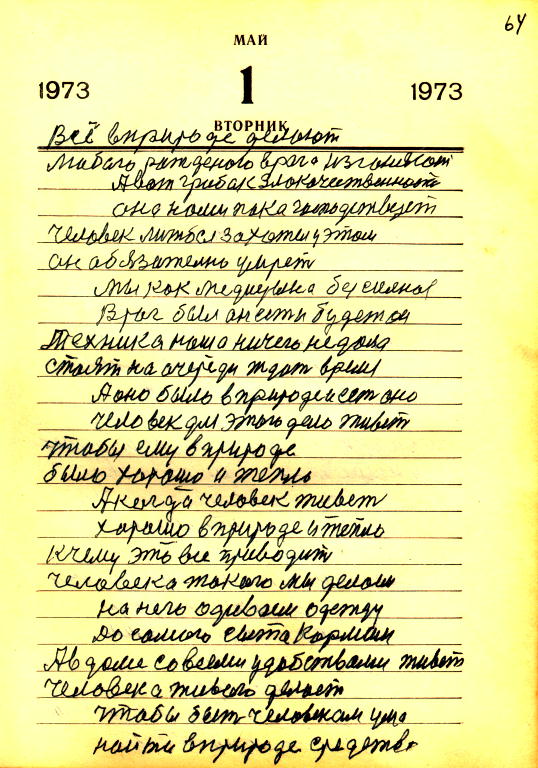 64
МАЙ
1973 1 1973
ВТОРНИК
Всё в природе делают
рожденого врага изгоняют
А вот грибок злокачественность
она нами пока господствует
человек лишься захотел этом
он обязательно умрет
Мы как медицина бессильна
Враг был он есть и будет он
Техника наша ничего не дала
стоят на очереди ждат время
А оно было в природе и есть оно
человек для этого дела живет
чтобы ему в природе
было хорошо и тепло
А когда человек живет
хорошо в природе и тепло
К чему это все приводит
человека такого мы делаем
на него одиваем одежду
до самого сыта кормим
А в доме со всеми удобствами живет
человека живого делает
чтобы быть человекам ума
найти в природе средства